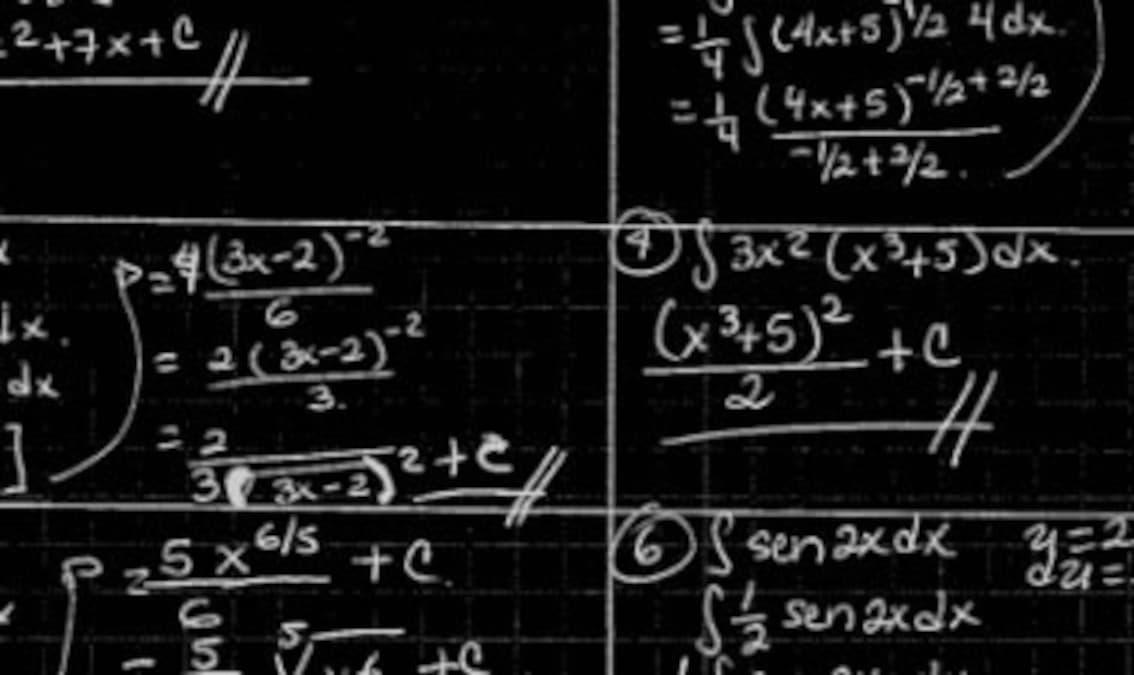 2+7x+C
= 1/4 ∫ (4x+5)^-1/2 4dx.
= 1/4 (4x+5)^-1/2+2/2
-1/2+2/2.
= 4(3x-2)^-2
6
= 2(3x-2)^-2
3.
= 2
3(3x-2)^2 +C
dx.
dx
]
④ ∫ 3x^2 (x^3+5)dx.
(x^3+5)^2 +C
2
= 5x^6/5 +C
6
= 5
+C
⑥ ∫ sen 2x dx
∫ 1/2 sen 2x dx